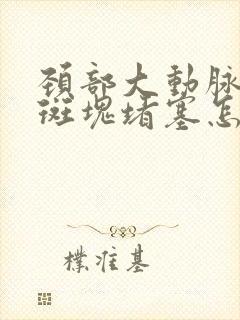 頚部大動脈
斑塊堵塞怎
樸准基